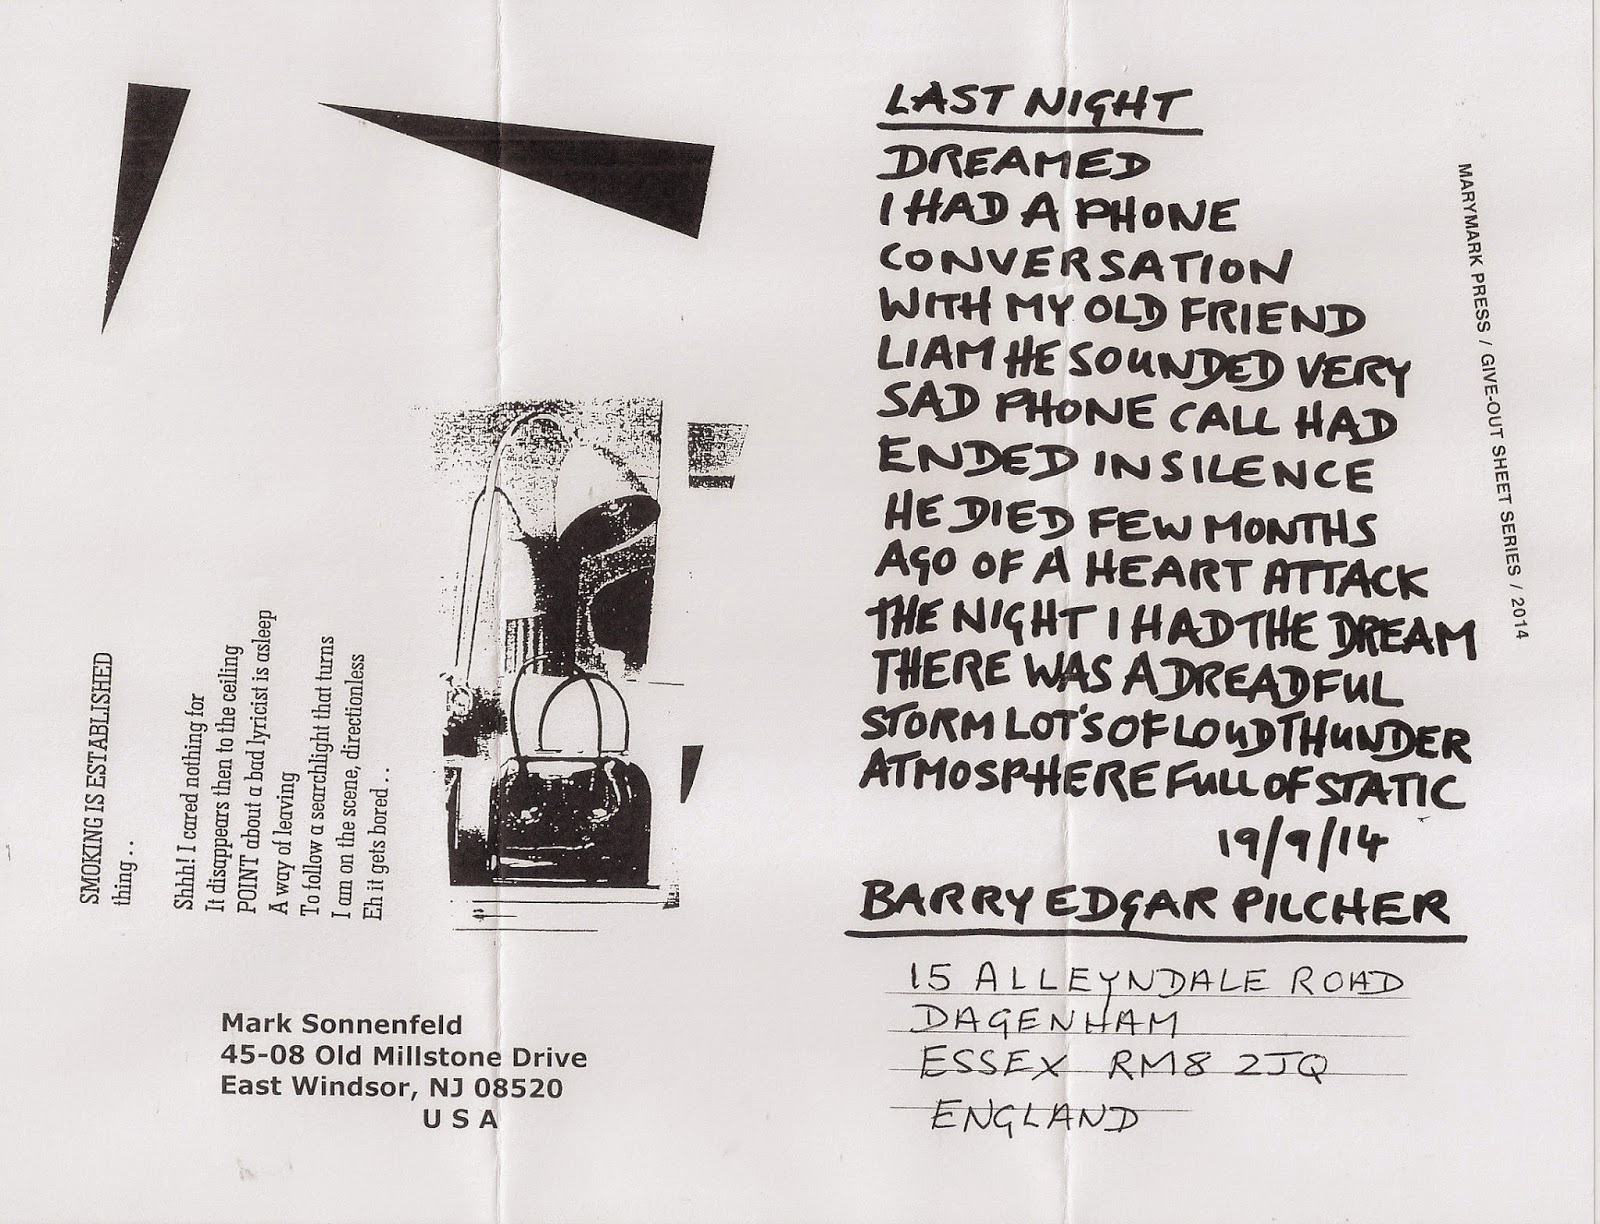 SMOKING IS ESTABLISHED
thing . .
Shhh! I cared nothing for
It disappears then to the ceiling
POINT about a bad lyricist is asleep
A way of leaving
To follow a searchlight that turns
I am on the scene, directionless
Eh it gets bored . .
Mark Sonnenfeld
45-08 Old Millstone Drive
East Windsor, NJ 08520
U S A
LAST NIGHT
DREAMED
I HAD A PHONE
CONVERSATION
WITH MY OLD FRIEND
LIAM HE SOUNDED VERY
SAD PHONE CALL HAD
ENDED IN SILENCE
HE DIED FEW MONTHS
AGO OF A HEART ATTACK
THE NIGHT I HAD THE DREAM
THERE WAS A DREADFUL
STORM LOT'S OF LOUD THUNDER
ATMOSPHERE FULL OF STATIC
19/9/14
BARRY EDGAR PILCHER
15 ALLEYNDALE ROAD
DAGENHAM
ESSEX RM8 2JQ
ENGLAND
MARYMARK PRESS / GIVE-OUT SHEET SERIES / 2014